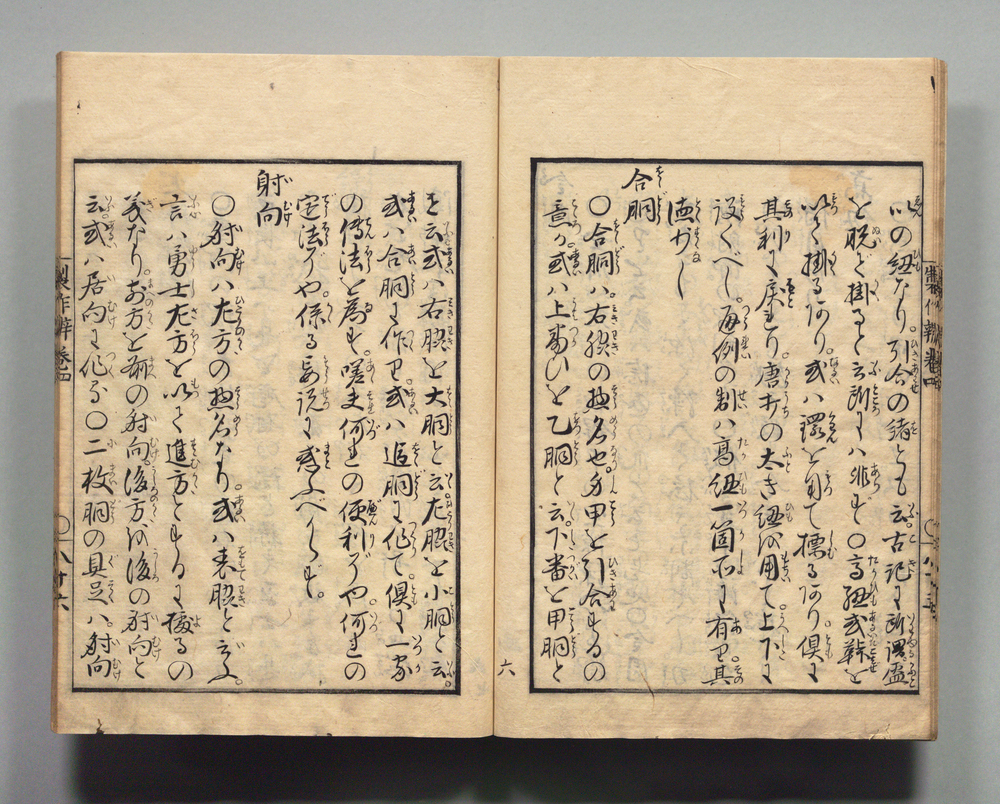 以の紐なり。引合の緒とも云。古記に所謂盈
を脱ぎ掛ると云所には非ず○高紐或鞐を
以て掛るあり。或ハ環を制て摽るあり。倶に
其利に戻れり。唐打の太き紐を用て。上下に
設くべし。通例の制ハ高紐一箇所に有り。其
徳少し
合胴
○合胴ハ。右脇の惣名也。身甲を引合するの
意か。或ハ上重ひを乙胴と云。下番を甲胴と
を云。或ハ右脇を大胴と云。左脇を小胴と云。
或ハ合胴に作り。或ハ追胴に作て。倶に一家
の傳法を為す。嗟夫何の便利ぞや。何の
定法ぞや。係る妄説に惑ふべからず。
射向
○射向ハ左方の惣名なり。或ハ表脇と云ふ。
言ハ勇士左方を以て進方とするに據るの
義なり。お方を前の射向。後方を後の射向と
云。或ハ居向に作る○二枚胴の具足ハ。射向
製作辨卷四
八十六
六